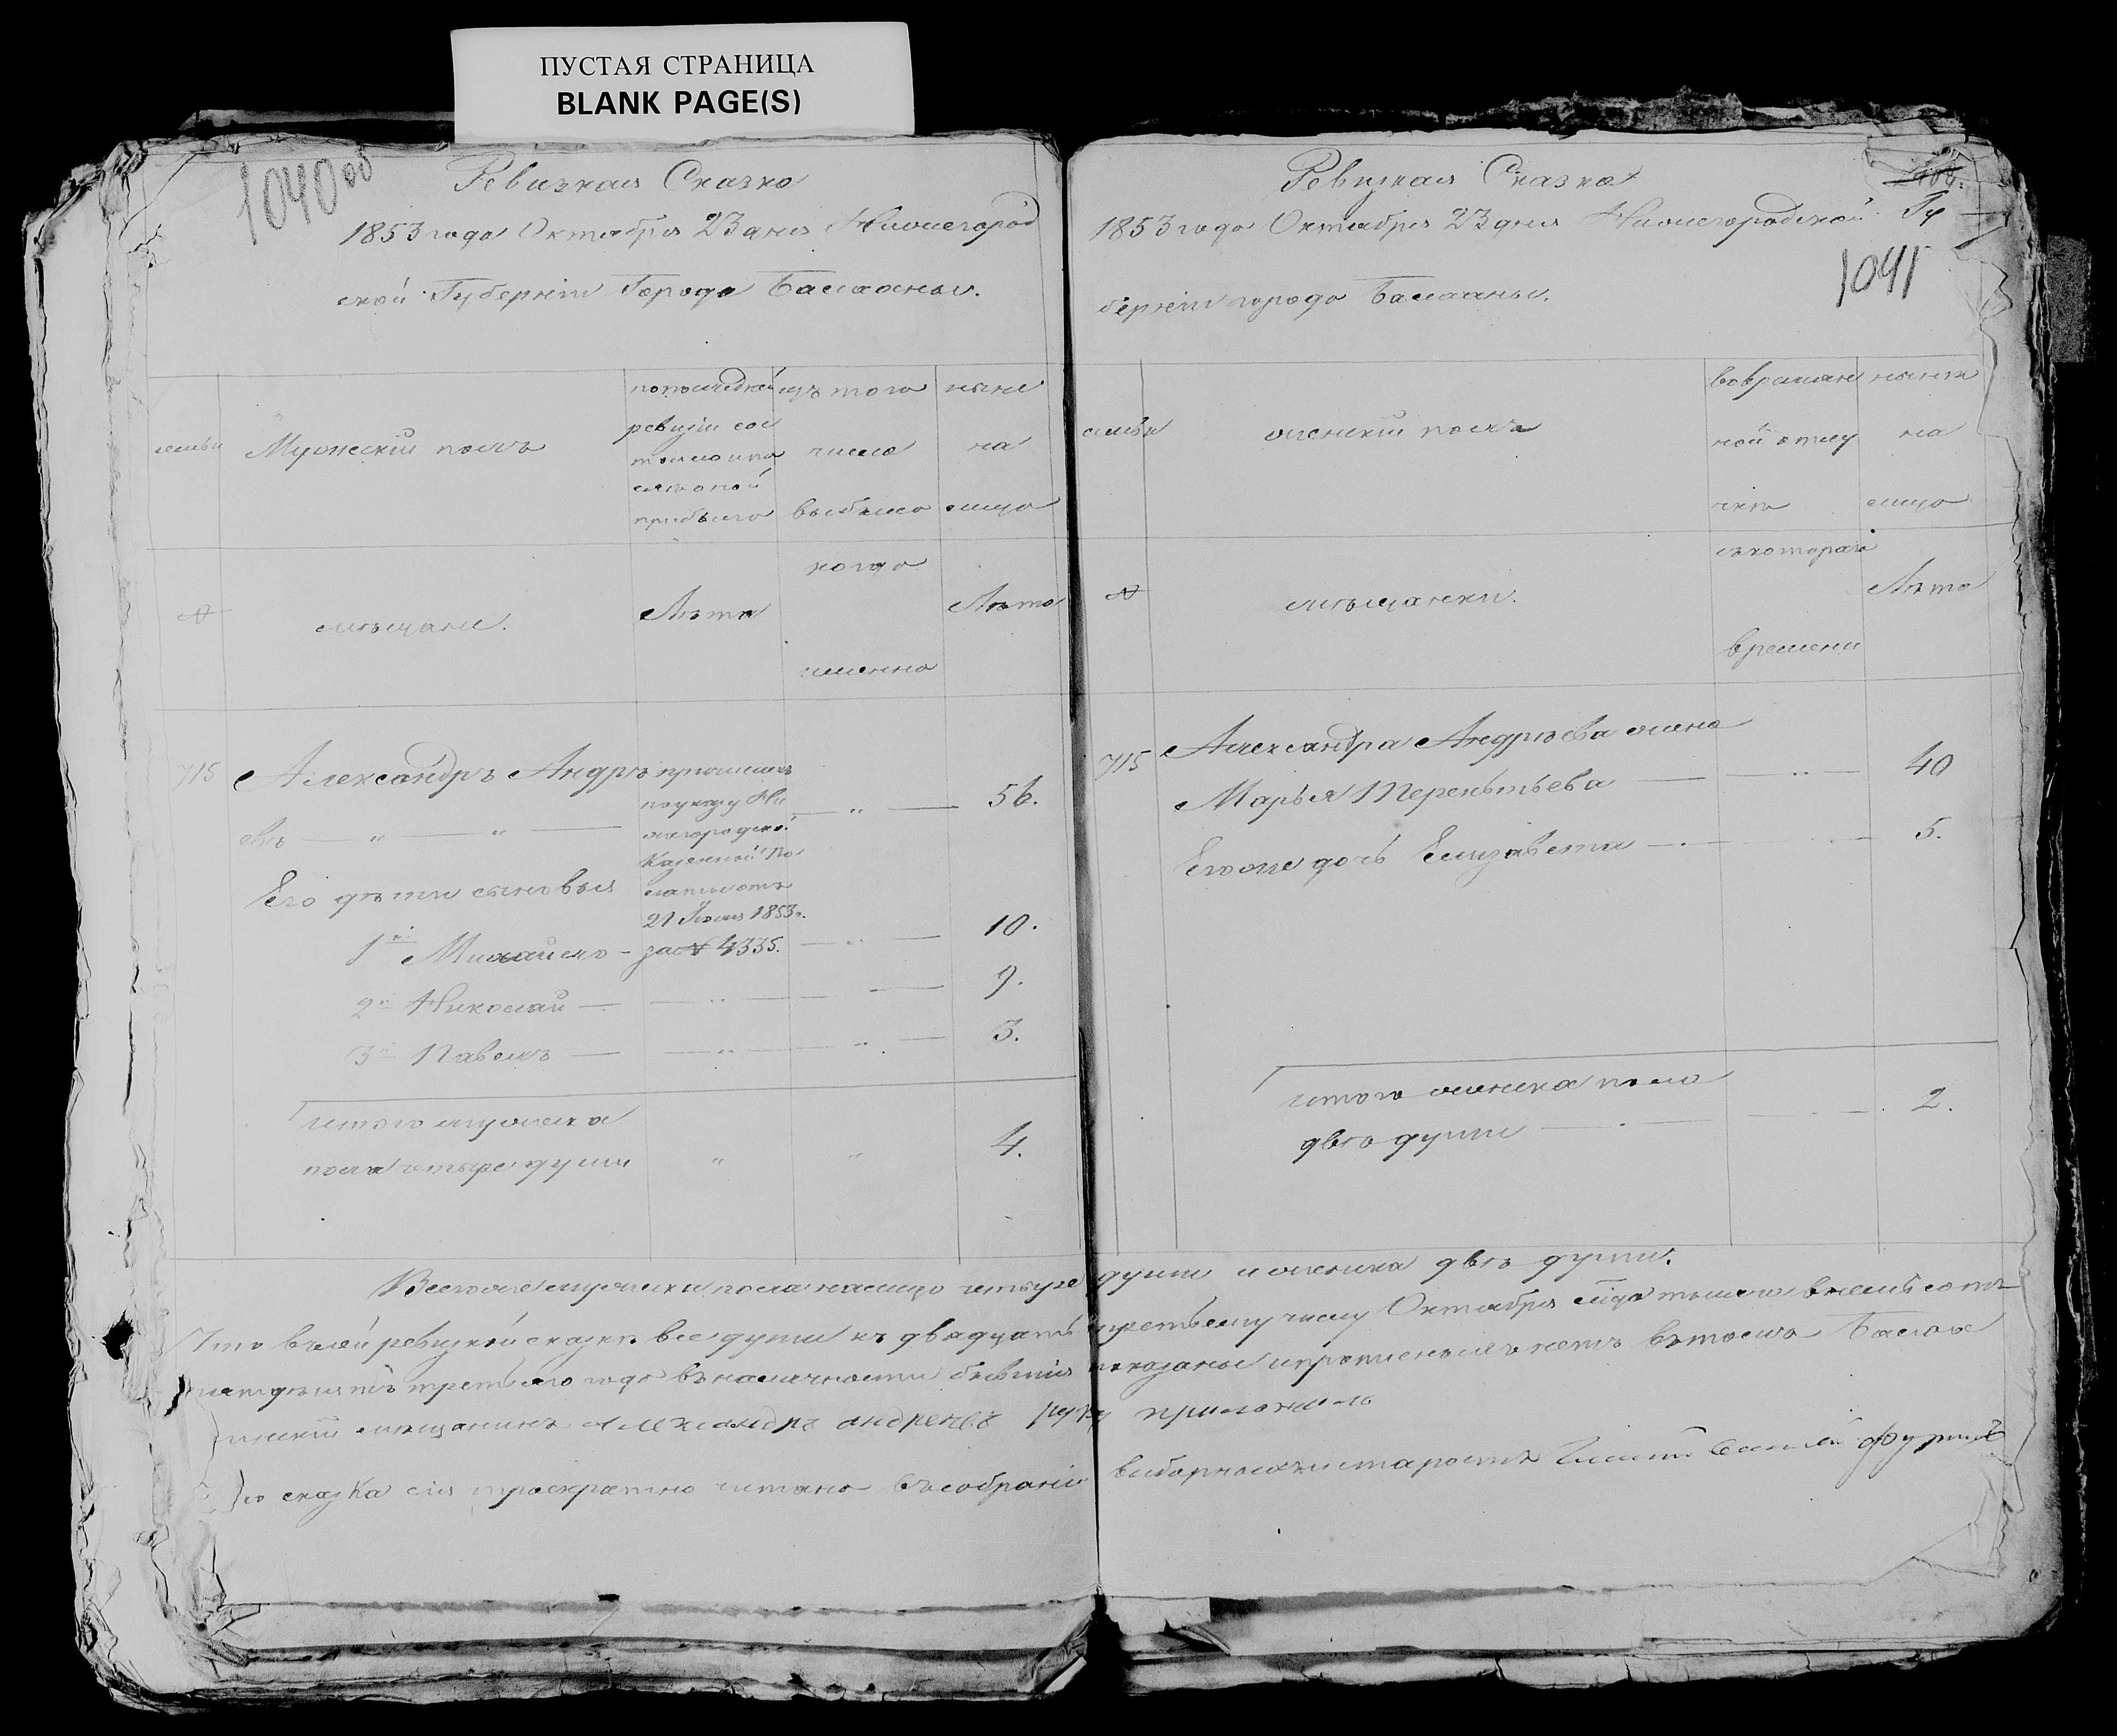 ПУСТАЯ СТРАНИЦА
BLANK PAGE(S)
1040 об
Ревизкая Сказка
1853 года Октября 23 дня Нижегород
ской Губерніи Города Балахны.
семьи
Мужескій полъ
по последней
ревизіи сос
тояло и по
слѣ оной
прибыло
изъ того
число
выбыло
ныне
на
лицо
№
мѣщане.
Лѣта
когда
именно
Лѣта
715
Александръ Андрѣ
евъ — " — " —
причисленъ
по указу Ни
жегородской
Казенной Па
латы отъ
21 Іюля 1853 г.
за № 4335.
— " — 56.
Его дѣти сыновья
1й Михайло — 10.
2й Николай — 9.
3й Павелъ — 3.
итого мужеска
пола четыре души " " 4.
Ревизкая Сказка
1853 года Октября 23 дня Нижегородской Гу
берніи города Балахны.
1041
семьи
женскій полъ
во времян
ной отлу
чкѣ
нынѣ
на
лицо
№
мѣщанки.
съ котораго
времени
Лѣта
715
Александра Андрѣева жена
Марья Терентьева — " — 40
Его же дочь Елизавета — 5.
итого женска пола
двѣ души — 2.
Всего же мужеска пола на лицо четыре души и женска двѣ души.
Что в сей ревизкой сказкѣ все души къ двадцать третьему числу Октября мца тысяча восемь сотъ
пятдесятъ третьяго года въ наличности бывшія показаны и прописныхъ нетъ въ томъ Балах
нинскій мѣщанинъ Александръ андреевъ руку приложилъ
сказка сія троекратно читана въ собраніи выборныхъ и староста